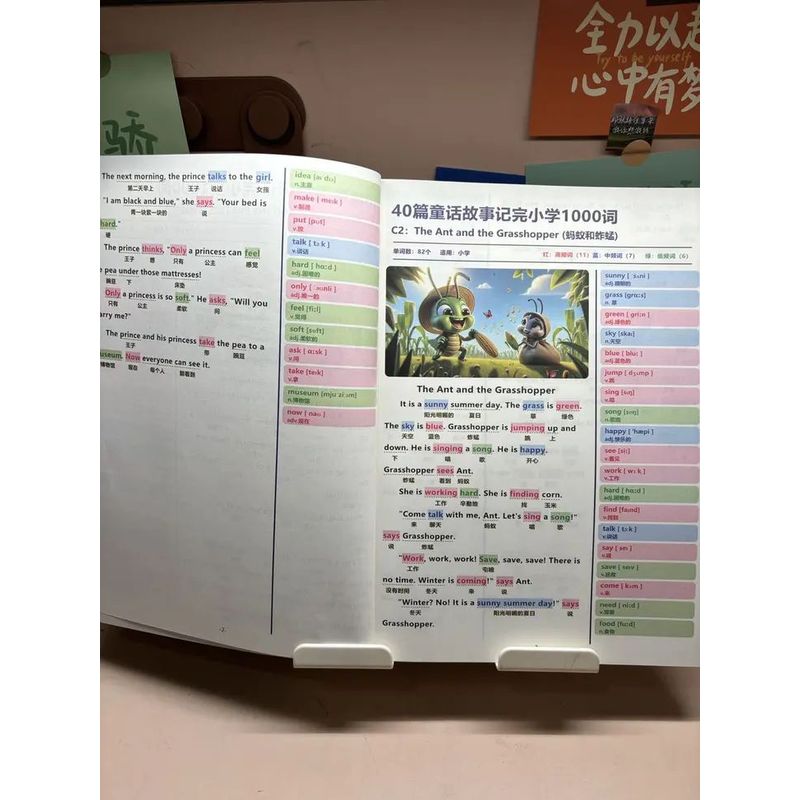 全力以赴
Try to be yourself
心中有梦
骄
The next morning, the prince talks to the girl.
第二天早上 王子 说话 女孩
"I am black and blue," she says. "Your bed is
青一块紫一块的 说
hard."
硬
The prince thinks, "Only a princess can feel
王子 想 只有 公主 感觉
pea under those mattresses!
豌豆 下 床垫
Only a princess is so soft." He asks, "Will you
只有 公主 柔软 问
arry me?"
The prince and his princess take the pea to a
王子 公主 带 豌豆
useum. Now everyone can see it.
博物馆 现在 每个人 能看到
-7-
idea
n.主意
make [ meɪk ]
v.制造
put [pʊt]
v.放
talk [ tɔːk ]
v.谈话
hard [ hɑːd ]
adj.困难的
only [ ˈəʊnli ]
adj.唯一的
feel [fiːl]
v.觉得
soft [sɒft]
adj.柔软的
ask [ ɑːsk ]
v.问
take [teɪk]
v.拿
museum [mjuˈziːəm]
n.博物馆
now [ naʊ ]
adv.现在
40篇童话故事记完小学1000词
C2: The Ant and the Grasshopper (蚂蚁和蚱蜢)
单词数: 82个 适用: 小学 红: 高频词 (11) 蓝: 中频词 (7) 绿: 低频词 (6)
The Ant and the Grasshopper
It is a sunny summer day. The grass is green.
阳光明媚的 夏日 草 绿色
The sky is blue. Grasshopper is jumping up and
天空 蓝色 蚱蜢 跳 上
down. He is singing a song. He is happy.
下 唱 歌 开心
Grasshopper sees Ant.
蚱蜢 看到 蚂蚁
She is working hard. She is finding corn.
工作 辛勤地 找 玉米
"Come talk with me, Ant. Let's sing a song!"
来 聊天 蚂蚁 唱 歌
says Grasshopper.
说 蚱蜢
"Work, work, work! Save, save, save! There is
工作
no time. Winter is coming!" says Ant.
没有时间 冬天 来 说
"Winter? No! It is a sunny summer day!" says
冬天 阳光明媚的夏日 说
Grasshopper.
sunny [ ˈsʌni ]
adj.晴朗的
grass [grɑːs]
n.草
green [ griːn ]
adj.绿色的
sky [skaɪ]
n.天空
blue [ bluː ]
adj.蓝色的
jump [ dʒʌmp ]
v.跳
sing [sɪŋ]
v.唱
song [sɒŋ]
n.歌曲
happy [ ˈhæpi ]
adj.快乐的
see [siː]
v.看见
work [ wɜːk ]
v.工作
hard [ hɑːd ]
adj.困难的
find [faɪnd]
v.找到
talk [ tɔːk ]
v.谈话
say [ seɪ ]
v.说
save [ seɪv ]
v.拯救
come [ kʌm ]
v.来
need [ niːd ]
v.需要
food [fuːd]
n.食物